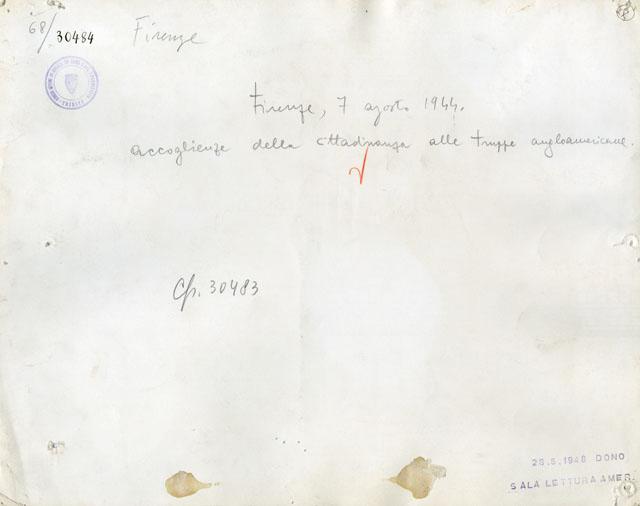 68/ 30484 Firenze
TRIESTE
Firenze, 7 agosto 1944.
accoglienze della cittadinanza alle truppe angloamericane.
Cfr. 30483
28.5.1948 DONO
SALA LETTURA AMER.